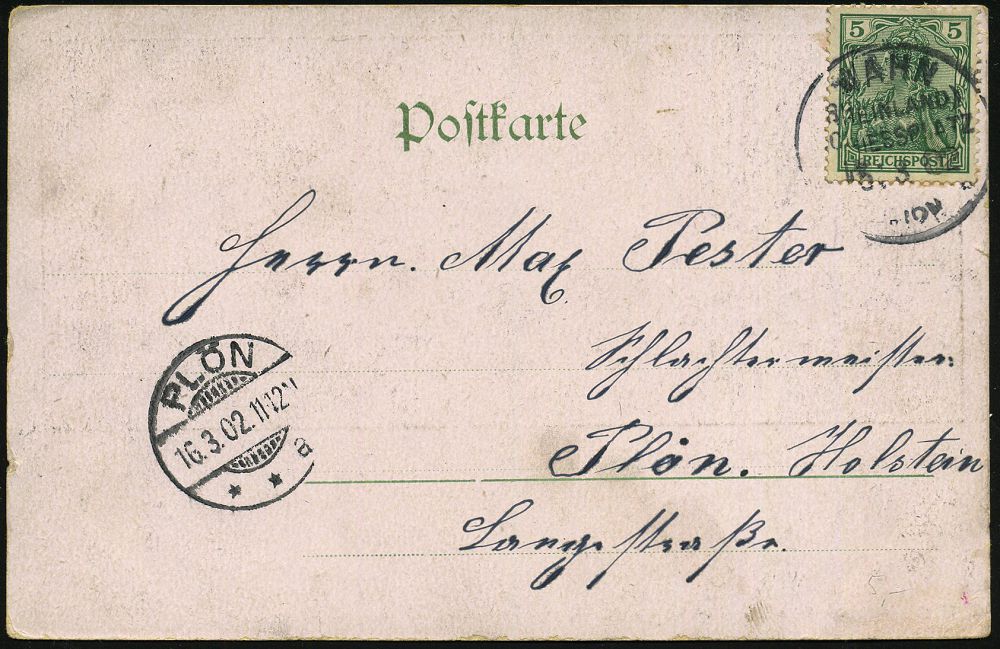 5 5
REICHSPOST
WAHN
(RHEINLAND)
SCHIESSPLATZ
15. 3. 02
Postkarte
Herrn. Max Pester
Schlachtermeister.
Plön. Holstein
Langestraße.
PLÖN
16.3.02.11-12V
* * a
5,-